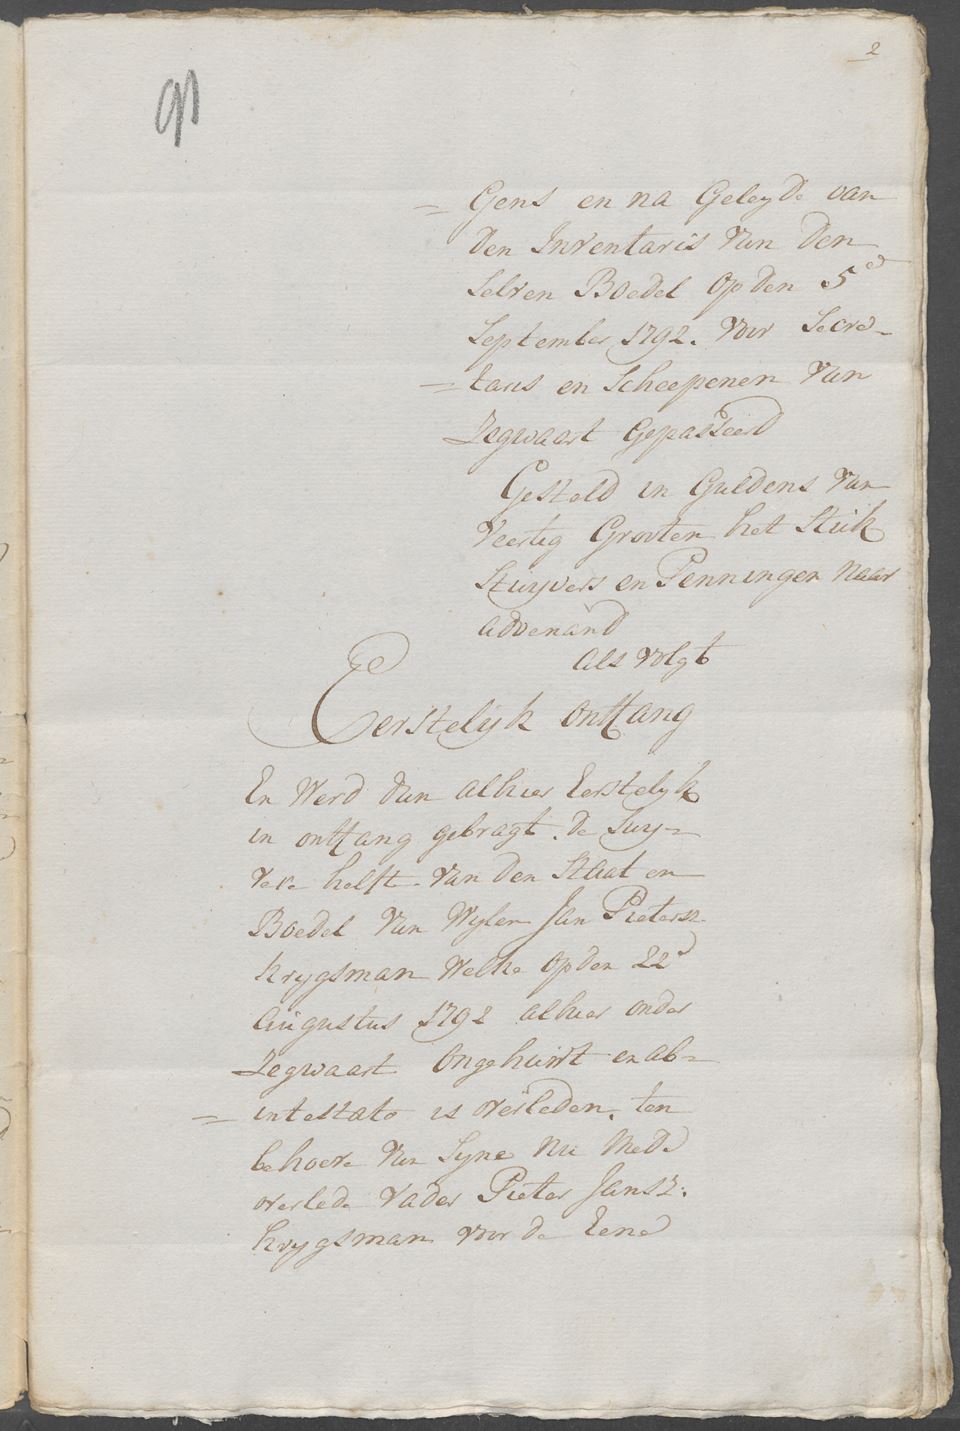 2
= Gens en na Geleyde van
den Inventaris van den
selven Boedel op den 5e
September 1792. voor Secre-
= taris en Scheepenen van
Zegwaart Gepasseerd
Gesteld in Guldens van
Veertig Grooten het Stuk
Stuyvers en Penningen naar
advenand
als volgt
Eerstelyk ontfang
En Werd dan alhier Eerstelyk
in ontfang gebragt. de Suy=
vere helft van den Staat en
Boedel van Wylen Jan Pietersz.
Krygsman Welke op den 22d
Augustus 1792 alhier onder
Zegwaart Ongehuwt en ab=
= intestato is overleden, ten
behoeve van Syne nu mede
overlede Vader Pieter Jansz:
Krygsman voor de Eene